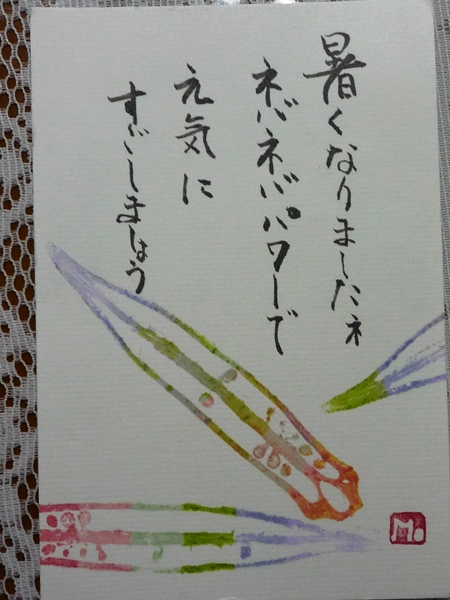 暑くなりましたネ
ネバネバパワーで
元気に
すごしましょう
M.